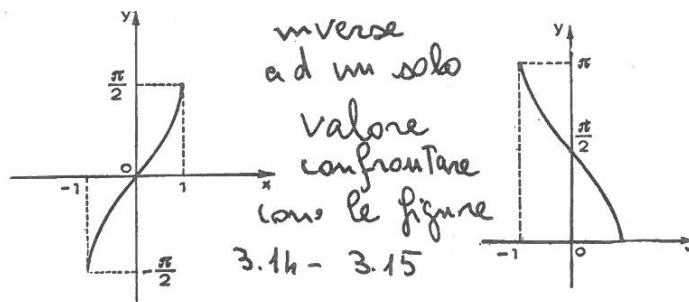 y
π/2
O
-1
1
x
-π/2
inverse
ad un solo
valore
confrontare
con le figure
3.14 - 3.15
y
π
π/2
-1
0